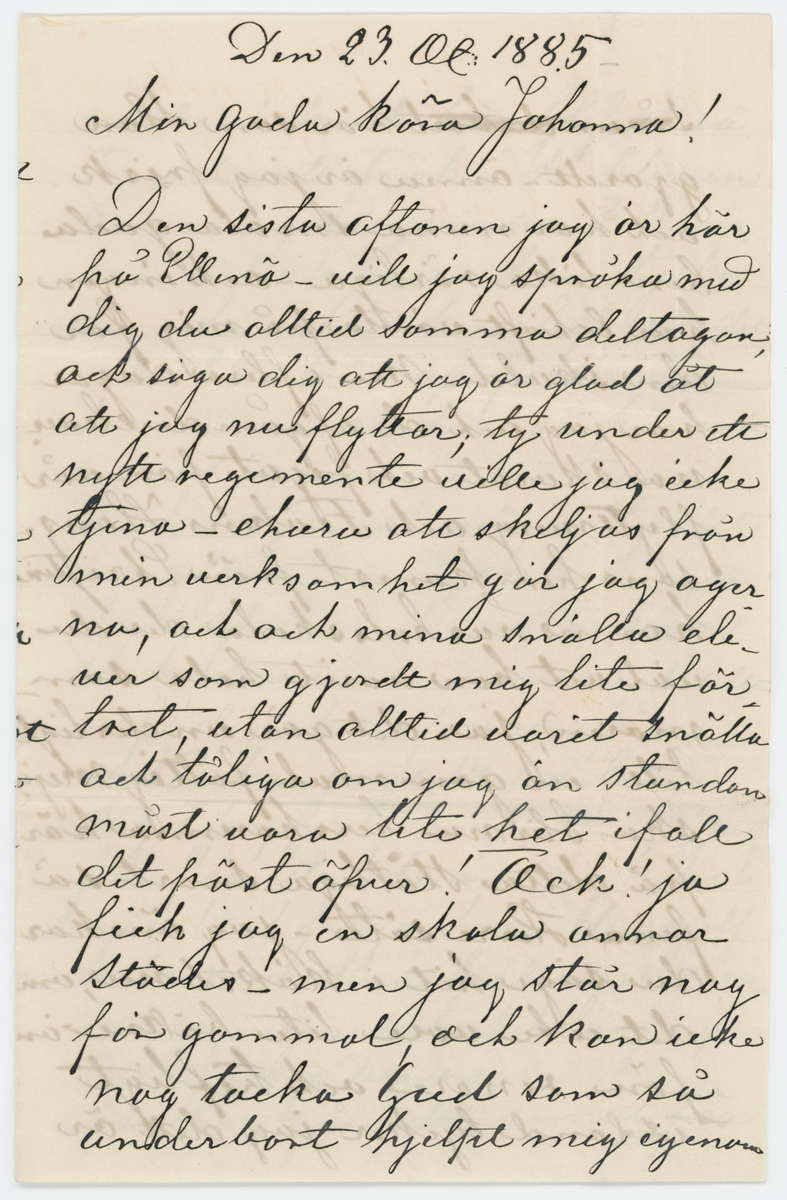 Den 23. Oc: 1885
Min goda kära Johanna!
Den sista aftonen jag är här
på Ellenö – vill jag språka med
dig du alltid samma deltagan,
och säga dig att jag är glad åt
att jag nu flyttar; ty under ett
nytt regemente ville jag icke
tjena – churu att skiljas från
min verksamhet gör jag oger
na, och och mina snälla ele-
ver som gjordt mig lite för-
tret, utan alltid varit snälla
och tåliga om jag än stundom
måst vara lite het ifall
det påst öfver! Ack! ja
fich jag en skola annor
städes – men jag står nog
för gammal, och kan icke
nog tacka Gud som så
underbart hjelpt mig igenom